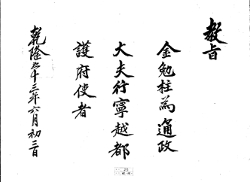 敎旨
金勉柱爲通政
大夫行寧越都
護府使者
乾隆五十三年六月初三日